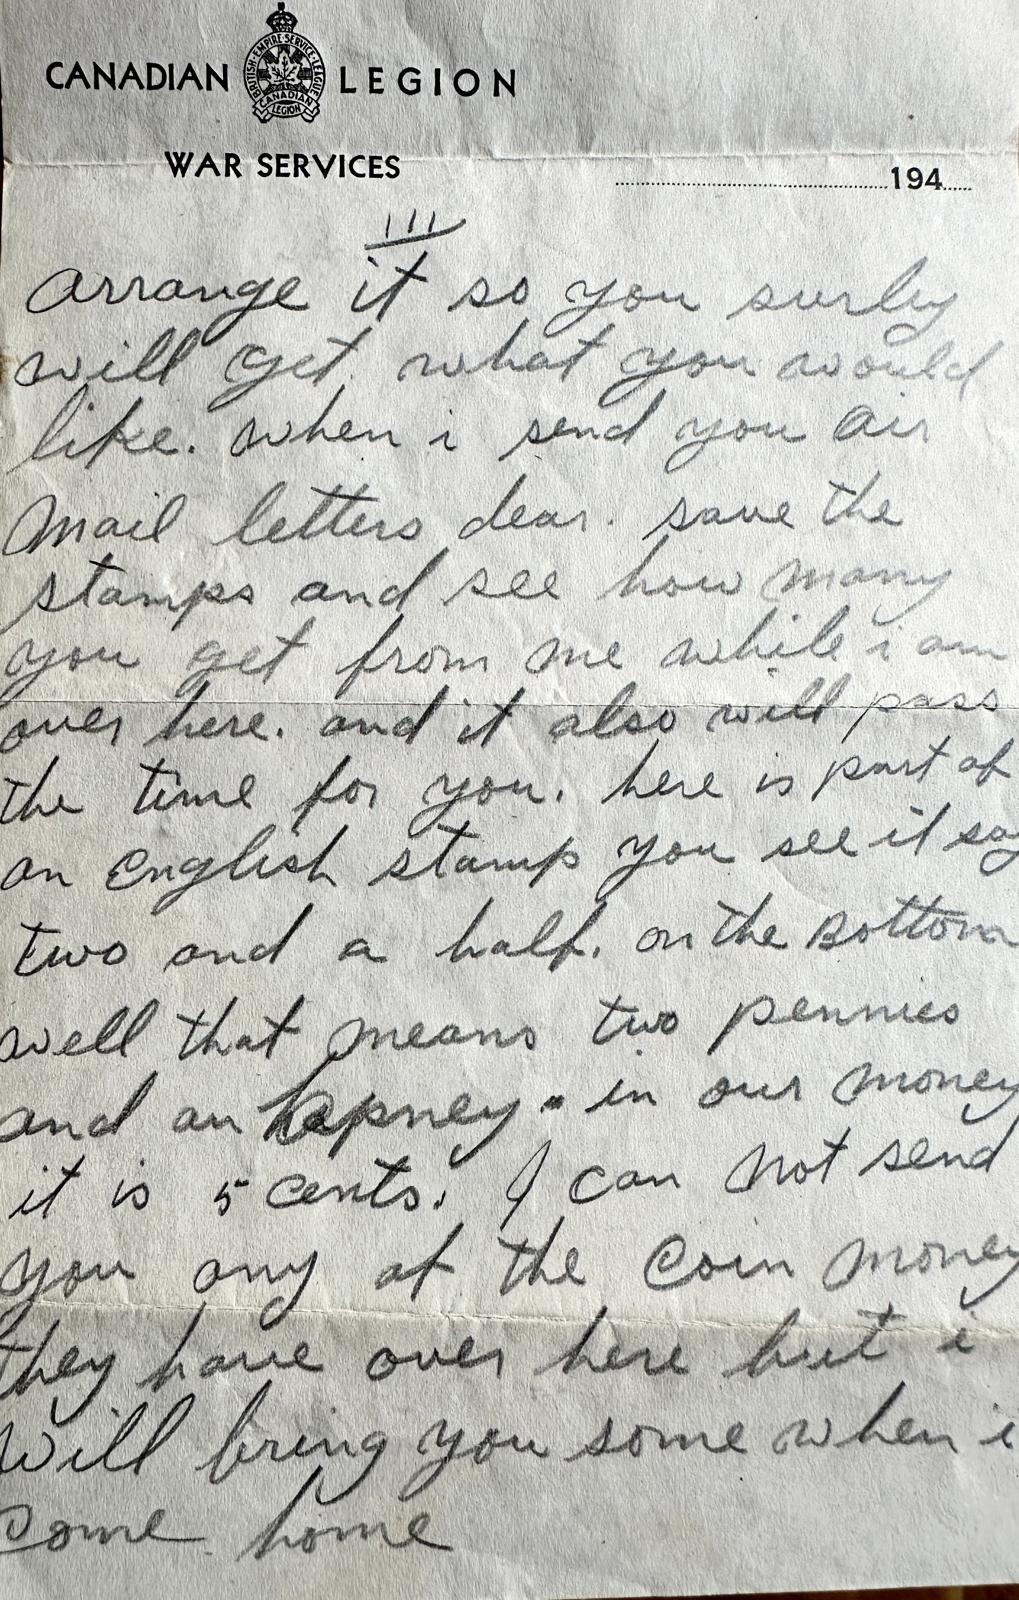 CANADIAN LEGION
BRITISH·EMPIRE·SERVICE·LEAGUE
CANADIAN
LEGION
WAR SERVICES
194
III
arrange it so you surley
will get. what you would
like. when i send you air
mail letters dear. save the
stamps and see how many
you get from me while i am
over here. and it also will pass
the time for you. here is part of
an English stamp you see it say
two and a half. on the Bottom
well that means two pennies
and an hapney. in our money
it is 5 cents. I can not send
you any of the coin money
they have over here but i
will bring you some when i
come home